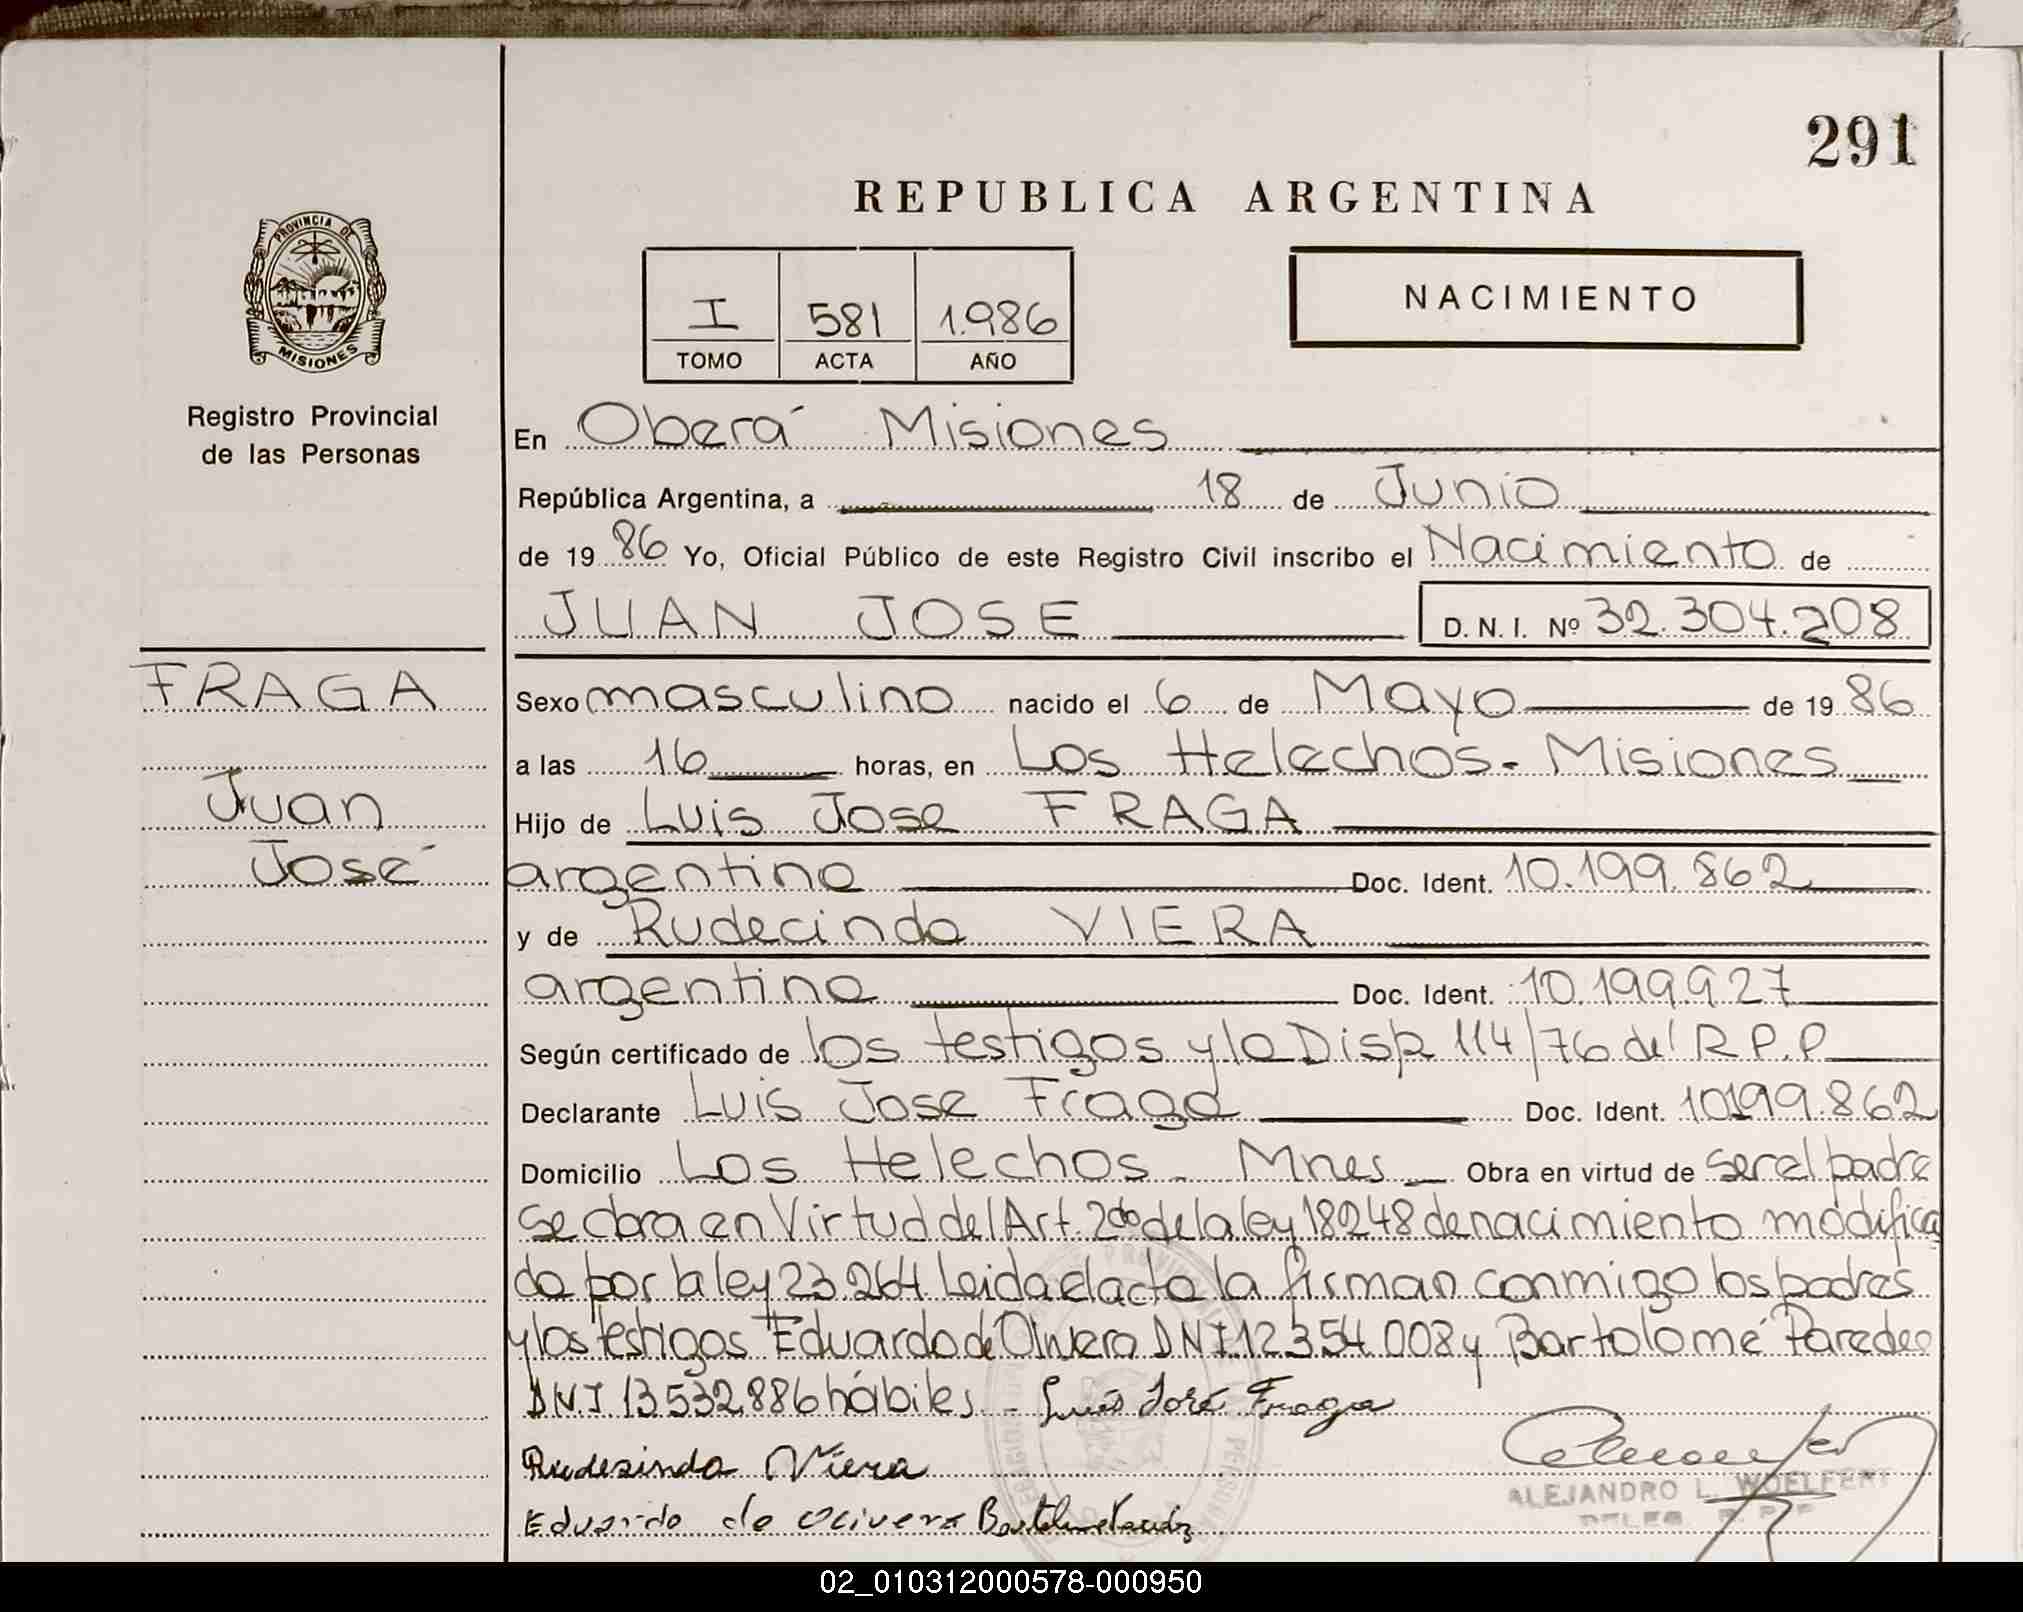 291
REPUBLICA ARGENTINA
PROVINCIA DE
MISIONES
Registro Provincial
de las Personas
I 581 1.986
TOMO ACTA AÑO
NACIMIENTO
En Oberá Misiones
República Argentina, a 18 de Junio
de 1986 Yo, Oficial Público de este Registro Civil inscribo el Nacimiento de
JUAN JOSE D.N.I. Nº 32.304.208
FRAGA
Juan
José
Sexo masculino nacido el 6 de Mayo de 1986
a las 16 horas, en Los Helechos - Misiones
Hijo de Luis Jose FRAGA
argentino Doc. Ident. 10.199.862
y de Rudecinda VIERA
argentina Doc. Ident. 10.199.927
Según certificado de los testigos y la Disp. 114/76 del R.P.P
Declarante Luis Jose Fraga Doc. Ident. 10199.862
Domicilio Los Helechos - Mnes Obra en virtud de ser el padre
se obra en Virtud del Art. 2do de la ley 18248 de nacimiento modifica
da por la ley 23.264 Leida el acta la firman conmigo los padres
y los testigos Eduardo de Olivera DNI 12.354.008 y Bartolomé Paredes
D.N.I 13.532.886 hábiles - Luis José Fraga
Rudesinda Viera
Eduardo de Olivera
ALEJANDRO L. WOELFERT
DELEG. R. P. P
02_010312000578-000950